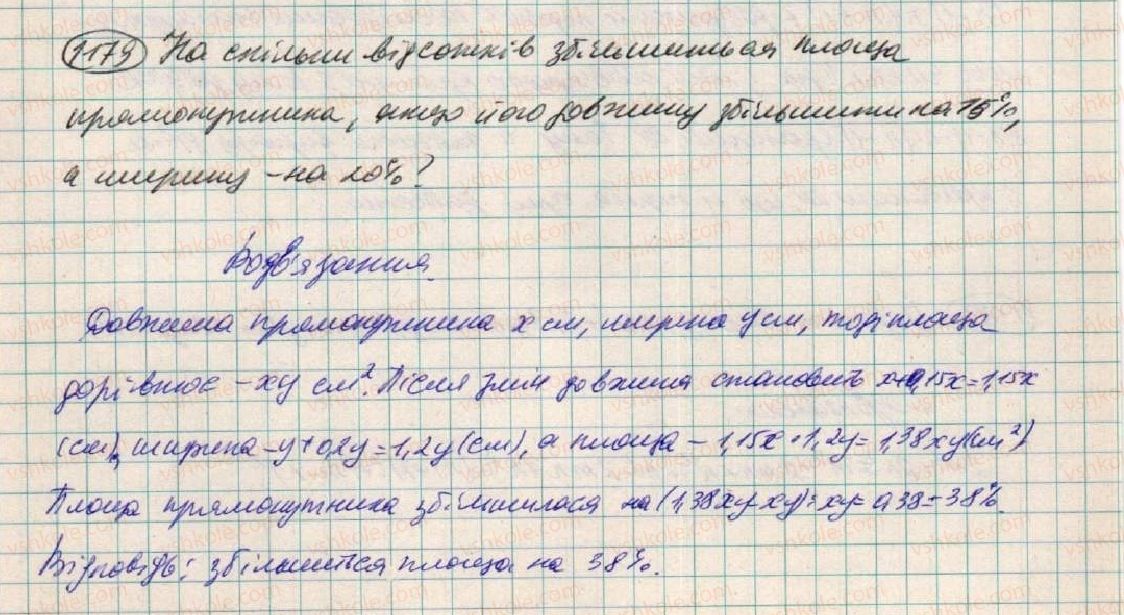 1179 На скільки відсотків збільшиться площа
прямокутника, якщо його довжину збільшити на 15%,
а ширину - на 20%?
Розв'язання.
Довжина прямокутника x см, ширина y см, тоді площа
дорівнює - xy см². Після змін довжина становить x+0,15x=1,15x
(см), ширина - y+0,2y=1,2y(см), а площа - 1,15x·1,2y=1,38xy(см²)
Площа прямокутника збільшилася на (1,38xy-xy):xy=0,38=38%.
Відповідь: збільшиться площа на 38%.